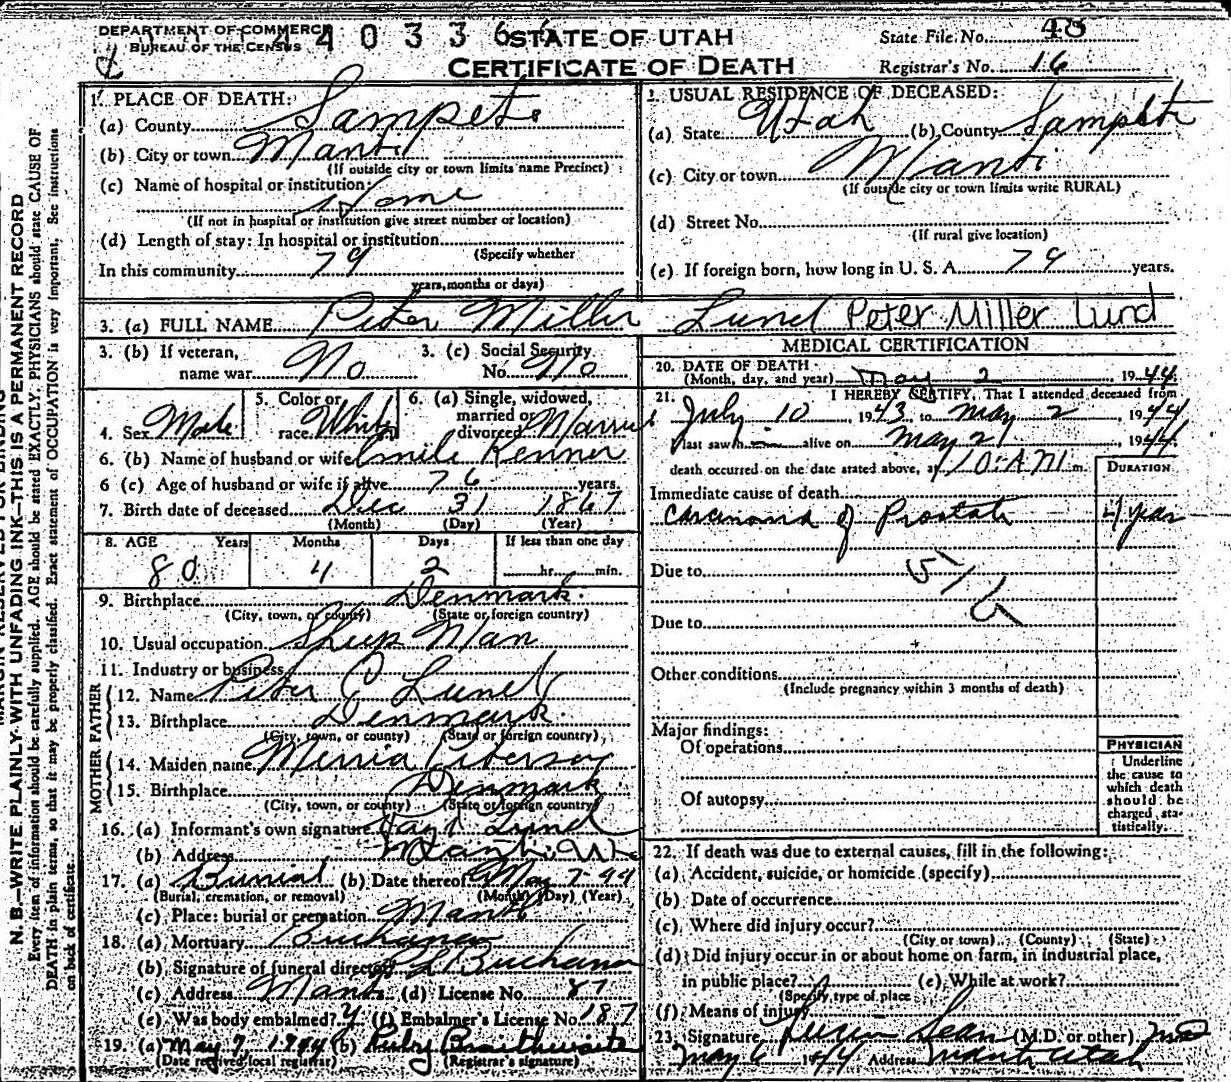 DEPARTMENT OF COMMERCE
BUREAU OF THE CENSUS
4 0 3 3 6
STATE OF UTAH
CERTIFICATE OF DEATH
State File No. 48
Registrar's No. 16
N. B.—WRITE PLAINLY WITH UNFADING INK—THIS IS A PERMANENT RECORD
Every item of information should be carefully supplied. AGE should be stated EXACTLY. PHYSICIANS should state CAUSE OF
DEATH in plain terms, so that it may be properly classified. Exact statement of OCCUPATION is very important. See instructions
on back of certificate.
1. PLACE OF DEATH:
(a) County Sampete
(b) City or town Manti
(If outside city or town limits name Precinct)
(c) Name of hospital or institution:
Home
(If not in hospital or institution give street number or location)
(d) Length of stay: In hospital or institution
(Specify whether
In this community 79
years, months or days)
2. USUAL RESIDENCE OF DECEASED:
(a) State Utah (b) County Sampete
(c) City or town Manti
(If outside city or town limits write RURAL)
(d) Street No.
(If rural give location)
(e) If foreign born, how long in U. S. A. 79 years.
3. (a) FULL NAME Peter Miller Lund Peter Miller Lund
3. (b) If veteran, name war No
3. (c) Social Security No. No
4. Sex Male
5. Color or race White
6. (a) Single, widowed, married or divorced Married
6. (b) Name of husband or wife Kenner
6 (c) Age of husband or wife if alive 76 years.
7. Birth date of deceased Dec 31 1867
(Month) (Day) (Year)
8. AGE Years Months Days If less than one day
80 4 2 hr. min.
9. Birthplace Denmark
(City, town, or county) (State or foreign country)
10. Usual occupation Sheep Man
11. Industry or business
FATHER
12. Name Peter C Lund
13. Birthplace Denmark
(City, town, or county) (State or foreign country)
MOTHER
14. Maiden name Peterson
15. Birthplace Denmark
(City, town, or county) (State or foreign country)
16. (a) Informant's own signature Lund
(b) Address Manti Ut
17. (a) Burial (b) Date thereof May 7-44
(Burial, cremation, or removal) (Month) (Day) (Year)
(c) Place: burial or cremation Manti
18. (a) Mortuary Buchanan
(b) Signature of funeral director L Buchanan
(c) Address Manti (d) License No. 87
(e) Was body embalmed? y (f) Embalmer's License No. 187
19. (a) May 7, 1944 (b) Ruby Braithwaite
(Date received local registrar) (Registrar's signature)
MEDICAL CERTIFICATION
20. DATE OF DEATH
(Month, day, and year) May 2 1944
21. I HEREBY CERTIFY, That I attended deceased from
July 10 1943 to May 2 1944
I last saw h alive on May 2 1944
death occurred on the date stated above, at 10:AM m.
DURATION
Immediate cause of death
Carcinoma of Prostate year
Due to
Due to
Other conditions
(Include pregnancy within 3 months of death)
Major findings:
Of operations
Of autopsy
PHYSICIAN
Underline
the cause to
which death
should be
charged sta-
tistically.
22. If death was due to external causes, fill in the following:
(a) Accident, suicide, or homicide (specify)
(b) Date of occurrence
(c) Where did injury occur?
(City or town) (County) (State)
(d) Did injury occur in or about home on farm, in industrial place,
in public place? (e) While at work?
(Specify type of place
(f) Means of injury
23. Signature Lucien Sears (M.D. or other) MD
May 6 1944 Address Manti Utah